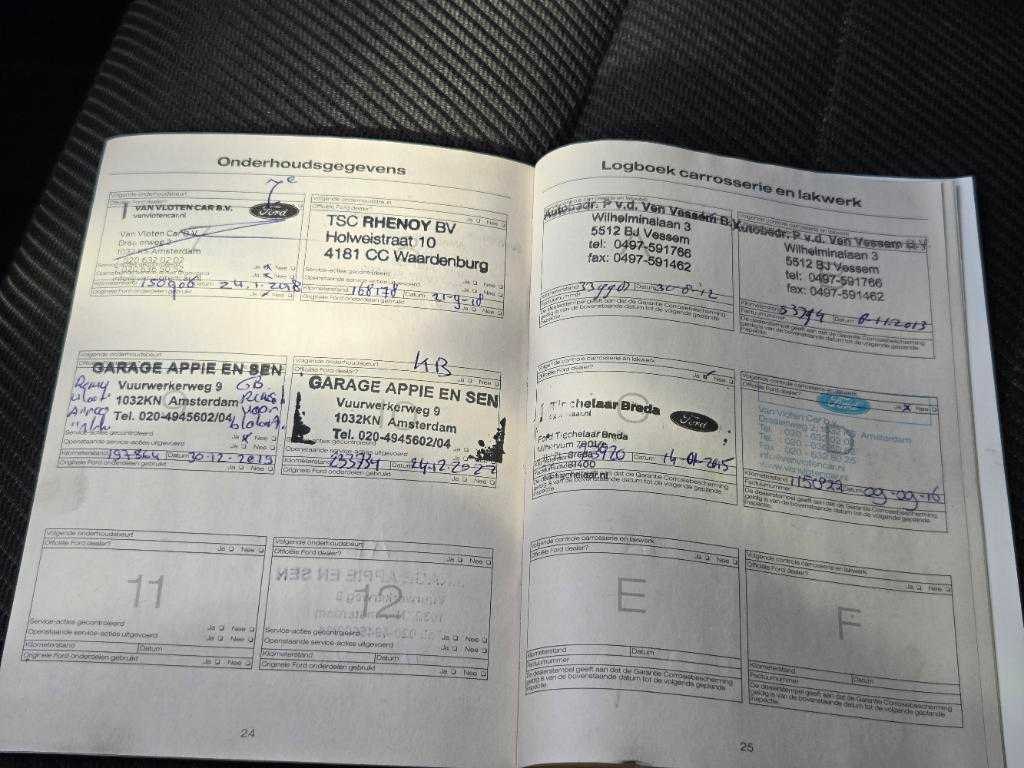 Onderhoudsgegevens
7e
Volgende onderhoudsbeurt
Officiële Ford dealer?
VAN VLOTEN CAR B.V.
vanvlotencar.nl
Ford
Van Vloten Car B.V.
1032 KN Amsterdam
Ja Nee
Kilometerstand 150906 Datum 24.1.2018
Originele Ford onderdelen gebruikt Ja Nee
Volgende onderhoudsbeurt
Officiële Ford dealer? Ja Nee
TSC RHENOY BV
Holweistraat 10
4181 CC Waardenburg
Service-acties gecontroleerd
Kilometerstand 168178 Datum 21-9-18
Originele Ford onderdelen gebruikt Ja Nee
Volgende onderhoudsbeurt
GARAGE APPIE EN SEN
Vuurwerkerweg 9
1032KN Amsterdam
Tel. 020-4945602/04
Service-acties gecontroleerd
Openstaande service-acties uitgevoerd Ja Nee
Kilometerstand 197864 Datum 30-12-2019
Originele Ford onderdelen gebruikt Ja Nee
KB
Volgende onderhoudsbeurt
Officiële Ford dealer? Ja Nee
GARAGE APPIE EN SEN
Vuurwerkerweg 9
1032KN Amsterdam
Tel. 020-4945602/04
Kilometerstand 233734 Datum 24.12.2022
Originele Ford onderdelen gebruikt Ja Nee
Volgende onderhoudsbeurt
Officiële Ford dealer? Ja Nee
11
Service-acties gecontroleerd
Openstaande service-acties uitgevoerd Ja Nee
Kilometerstand Datum
Originele Ford onderdelen gebruikt Ja Nee
Volgende onderhoudsbeurt
Officiële Ford dealer? Ja Nee
12
Service-acties gecontroleerd
Openstaande service-acties uitgevoerd Ja Nee
Kilometerstand Datum
Originele Ford onderdelen gebruikt Ja Nee
24
Logboek carrosserie en lakwerk
Autobedr. P v.d. Ven Vessem B.V
Wilhelminalaan 3
5512 BJ Vessem
tel: 0497-591766
fax: 0497-591462
Kilometerstand Datum
De dealerstempel geeft aan dat de Garantie Corrosiebescherming
geldig is van de bovenstaande datum tot de volgende geplande
inspectie.
Autobedr. P v.d. Ven Vessem B.V
Wilhelminalaan 3
5512 BJ Vessem
tel: 0497-591766
fax: 0497-591462
Kilometerstand Datum
Factuurnummer
De dealerstempel geeft aan dat de Garantie Corrosiebescherming
geldig is van de bovenstaande datum tot de volgende geplande
inspectie.
Volgende controle carrosserie en lakwerk
Officiële Ford dealer? Ja Nee
Tigchelaar Breda
Ford
Ford Tigchelaar Breda
Datum 14-01-2015
De dealerstempel geeft aan dat de Garantie Corrosiebescherming
geldig is van de bovenstaande datum tot de volgende geplande
inspectie.
Volgende controle carrosserie en lakwerk
Officiële Ford dealer? Ja Nee
Van Vloten Car
Amsterdam
D
Kilometerstand Datum 09-09-16
Factuurnummer
De dealerstempel geeft aan dat de Garantie Corrosiebescherming
geldig is van de bovenstaande datum tot de volgende geplande
inspectie.
Volgende controle carrosserie en lakwerk
Officiële Ford dealer? Ja Nee
E
Kilometerstand Datum
Factuurnummer
De dealerstempel geeft aan dat de Garantie Corrosiebescherming
geldig is van de bovenstaande datum tot de volgende geplande
inspectie.
Volgende controle carrosserie en lakwerk
Officiële Ford dealer? Ja Nee
F
Kilometerstand
Factuurnummer Datum
De dealerstempel geeft aan dat de Garantie Corrosiebescherming
geldig is van de bovenstaande datum tot de volgende geplande
inspectie.
25